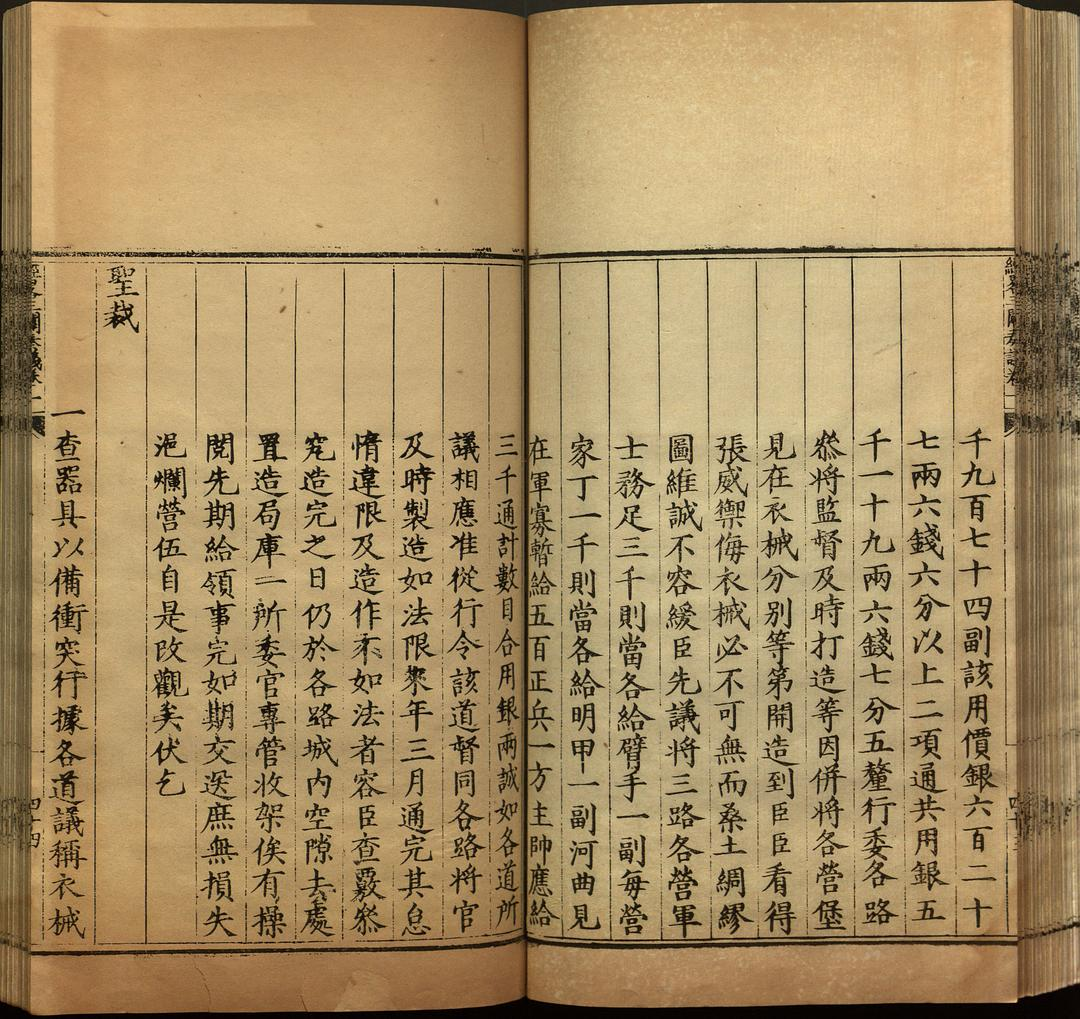 千九百七十四副該用價銀六百二十
七兩六錢六分以上二項通共用銀五
千一十九兩六錢七分五釐行委各路
叅將監督及時打造等因併將各營堡
見在衣械分別等第開造到臣臣看得
張威禦侮衣械必不可無而桑土綢繆
圖維誠不容緩臣先議將三路各營軍
士務足三千則當各給臂手一副每營
家丁一千則當各給明甲一副河曲見
在軍寡暫給五百正兵一方主帥應給
三千通計數目合用銀兩誠如各道所
議相應准從行令該道督同各路將官
及時製造如法限來年三月通完其怠
惰違限及造作不如法者容臣查覈叅
究造完之日仍於各路城内空隙去處
置造局庫一所委官專管收架俟有操
閱先期給領事完如期交送庶無損失
浥爛營伍自是改觀矣伏乞
聖裁
一查器具以備衝突行據各道議稱衣械
四十四